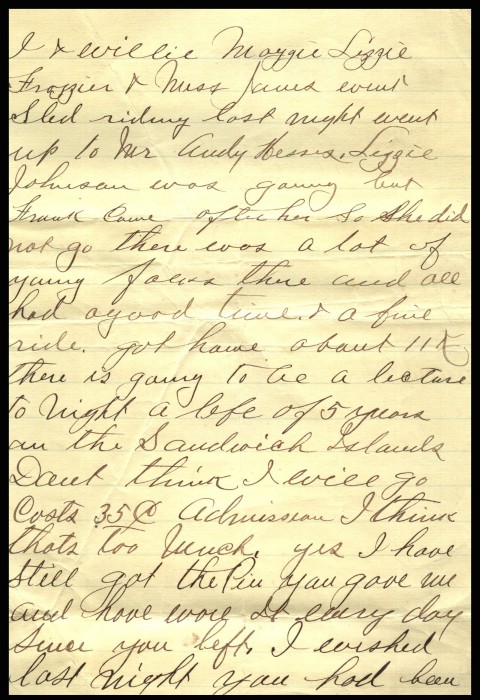 I & Willie Maggie Lizzie
Frazier & Miss Janes went
Sled riding last night went
up to Mr Andy Hesss. Lizzie
Johnson was going but
Frank Came after her So She did
not go there was a lot of
young folks there and all
had a good time. & a fine
ride. got home about 11
there is going to be a lecture
to night a life of 5 years
on the Sandwich Islands
Dont think I will go
Costs 35¢ Admission I think
thats too much. yes I have
still got the Pin you gave me
and have wore it every day
since you left. I wished
last night you had been